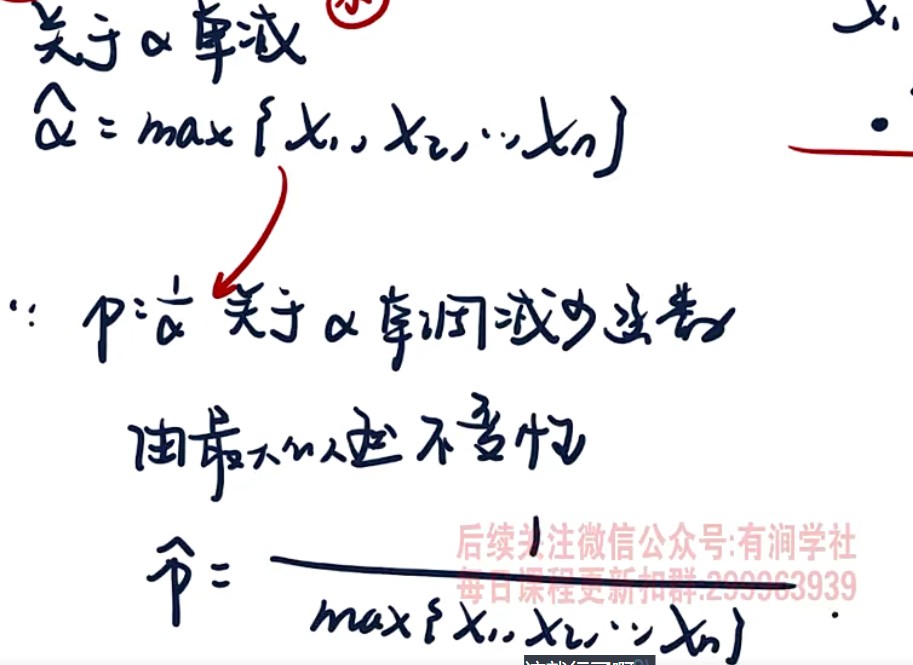 关于α单减
α̂ = max{X₁, X₂, …, Xₙ}
X₁
∵ p = 1/α 关于α单调减少函数
由最大似然不变性
p̂ = 1 / max{X₁, X₂, …, Xₙ}
后续关注微信公众号:有涧学社
每日课程更新扣群:299963939
这就行了啊